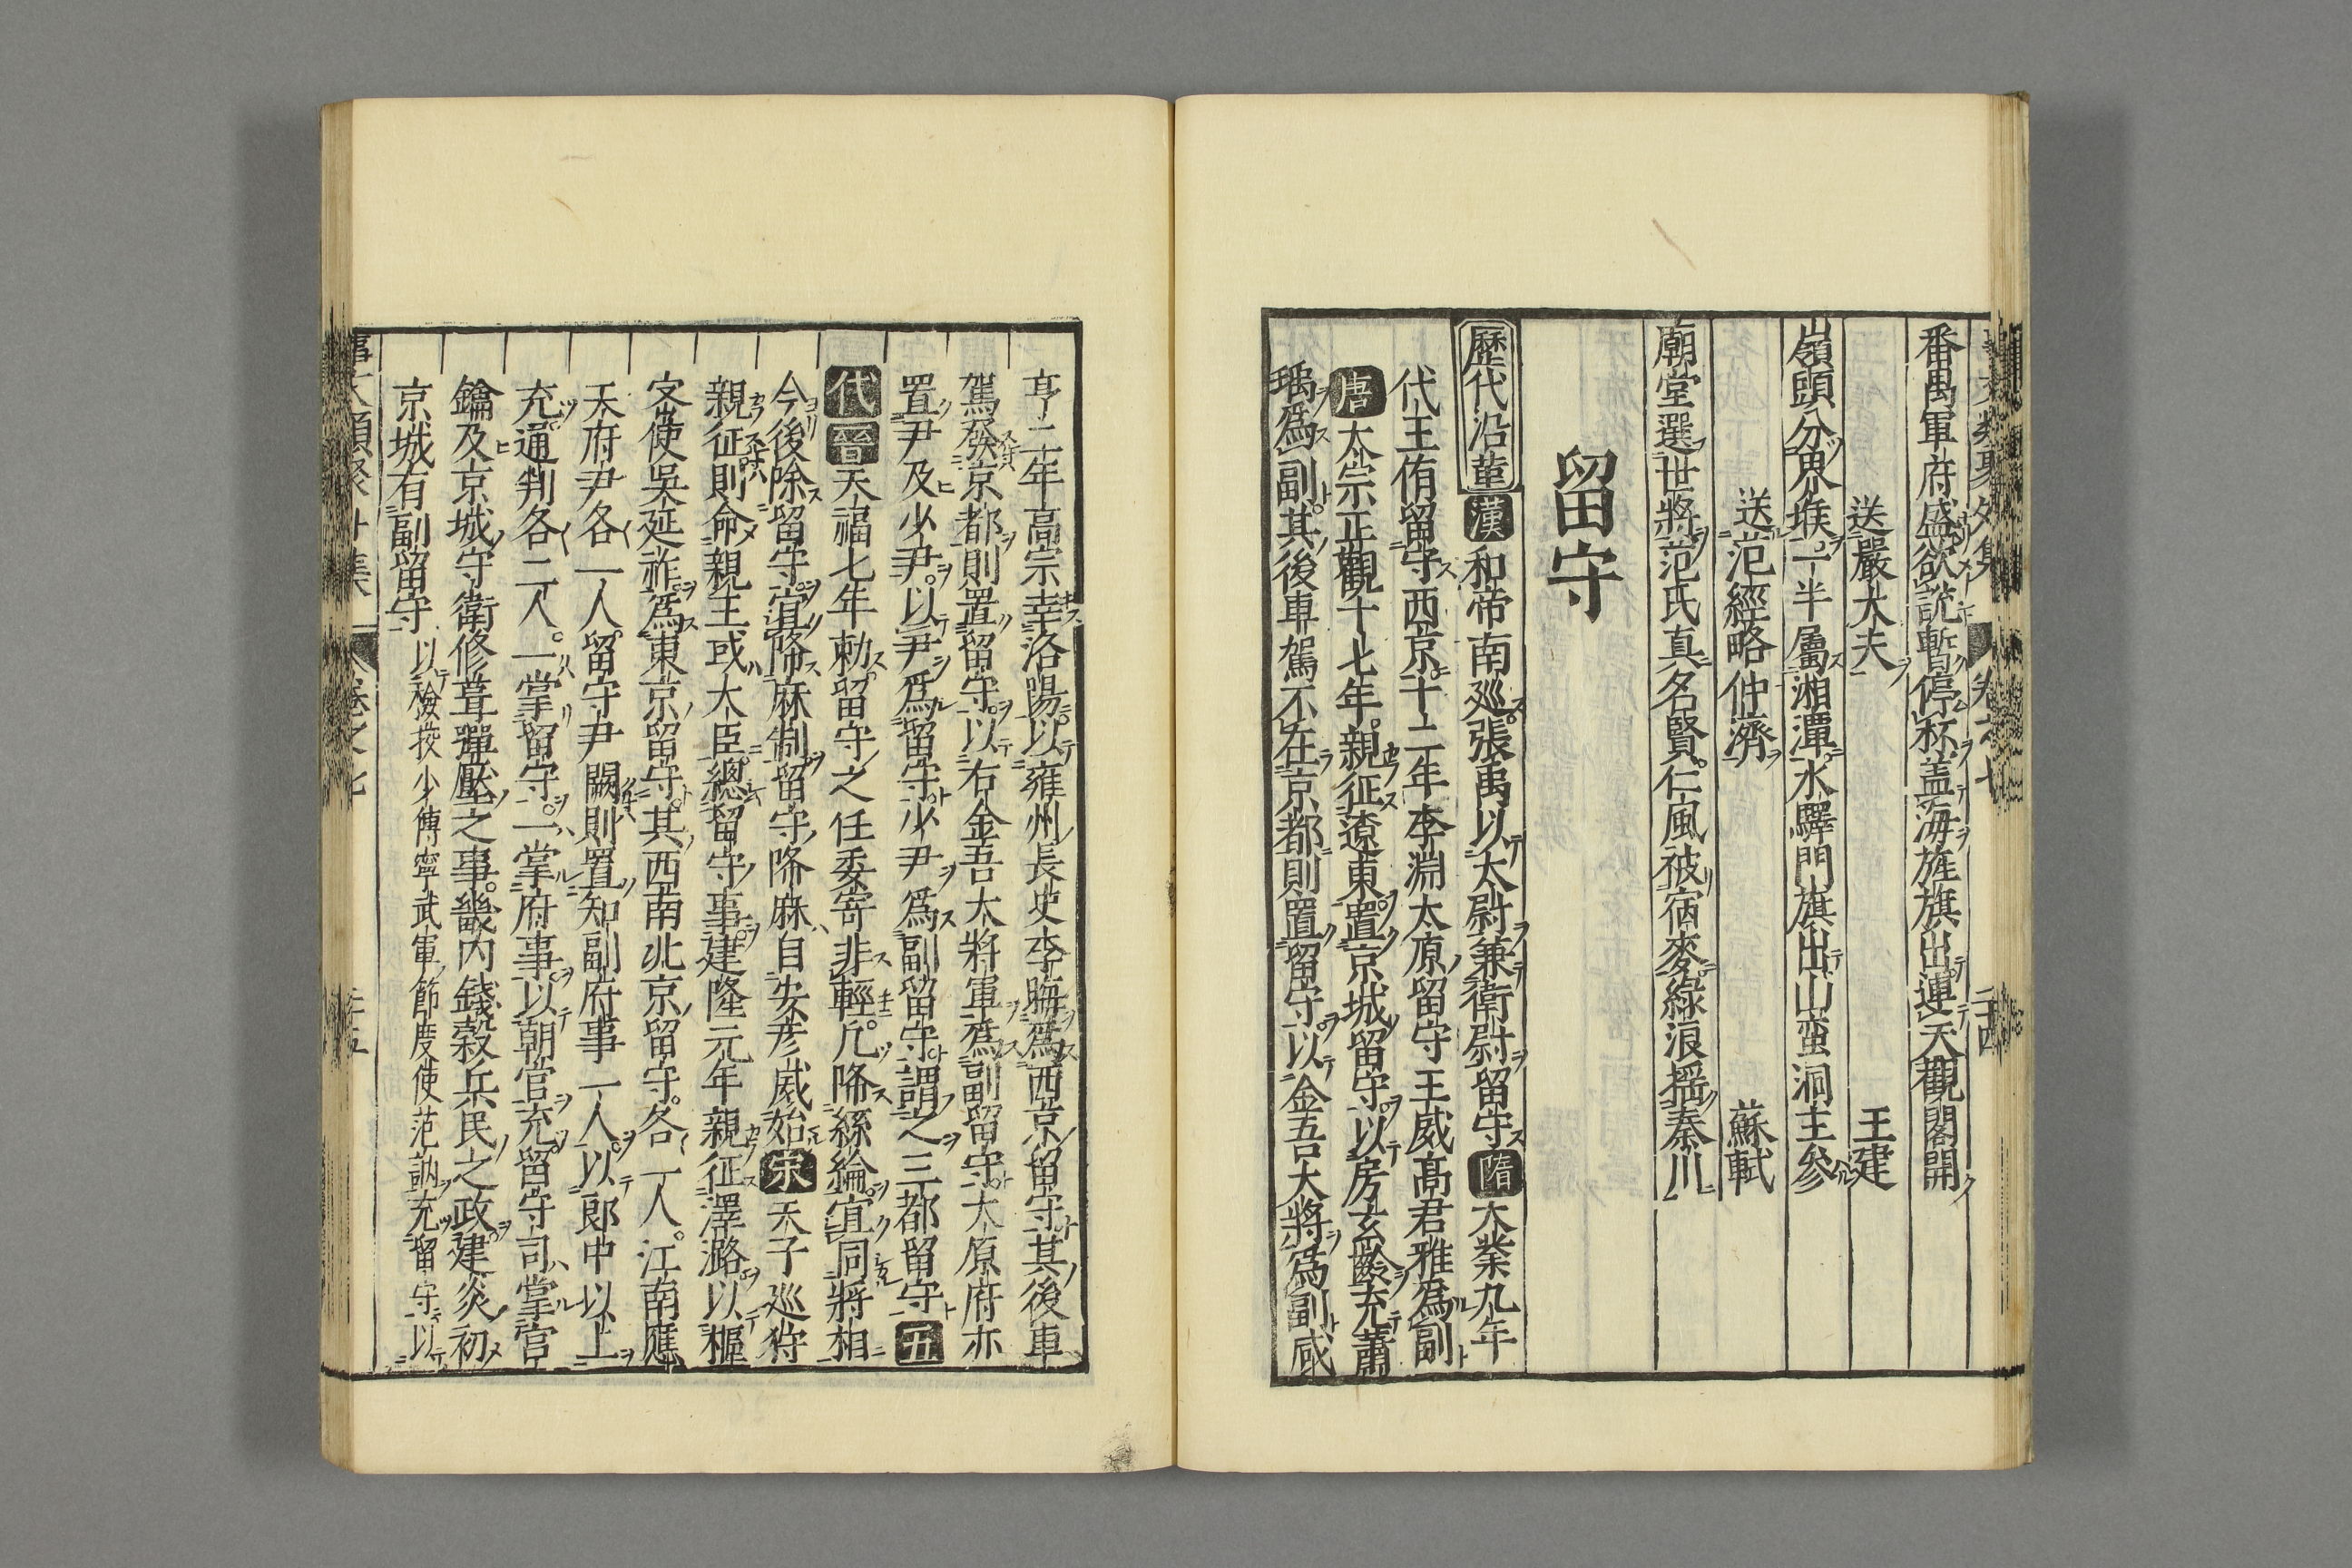 番禺軍府盛欲說暫停杯蓋海旌旗出連天觀閣開
送嚴大夫　王建
嶺頭分界堠一半屬湘潭水驛門旗出山蛮洞主參
送范經略仲濟　蘇軾
廟堂選世將范氏真名賢仁風被宿麥綠浪搖秦川
留守
歷代沿革 漢 和帝南廵張禹以太尉兼衛尉留守 隋 大業九年
代王侑留守西京十二年李淵太原留守王威高君雅爲副
唐 太宗正觀十七年親征遼東置京城留守以房玄齡充蕭
瑀爲副其後車駕不在京都則置留守以金吾大將爲副咸
亨二年高宗幸洛陽以雍州長史李晦爲西京留守其後車
駕發京都則置留守以右金吾大將軍爲副留守太原府亦
置尹及少尹以尹爲留守少尹爲副留守謂之三都留守 五
代 晉 天福七年勑留守之任委寄非輕凢降絲綸宜同將相
今後除留守宜降麻制留守降麻自安彦威始 宋 天子廵狩
親征則命親王或大臣總留守事建隆元年親征澤潞以樞
密使吳延祚爲東京留守其西南北京留守各一人江南應
天府尹各一人留守尹闕則置知副府事一人以郎中以上
充通判各二人一掌留守一掌府事以朝官充留守司掌宫
鑰及京城守衛修葺彈壓之事畿内錢穀兵民之政建炎初
京城有副留守 以檢挍少傅寧武軍節度使范訥充留守以